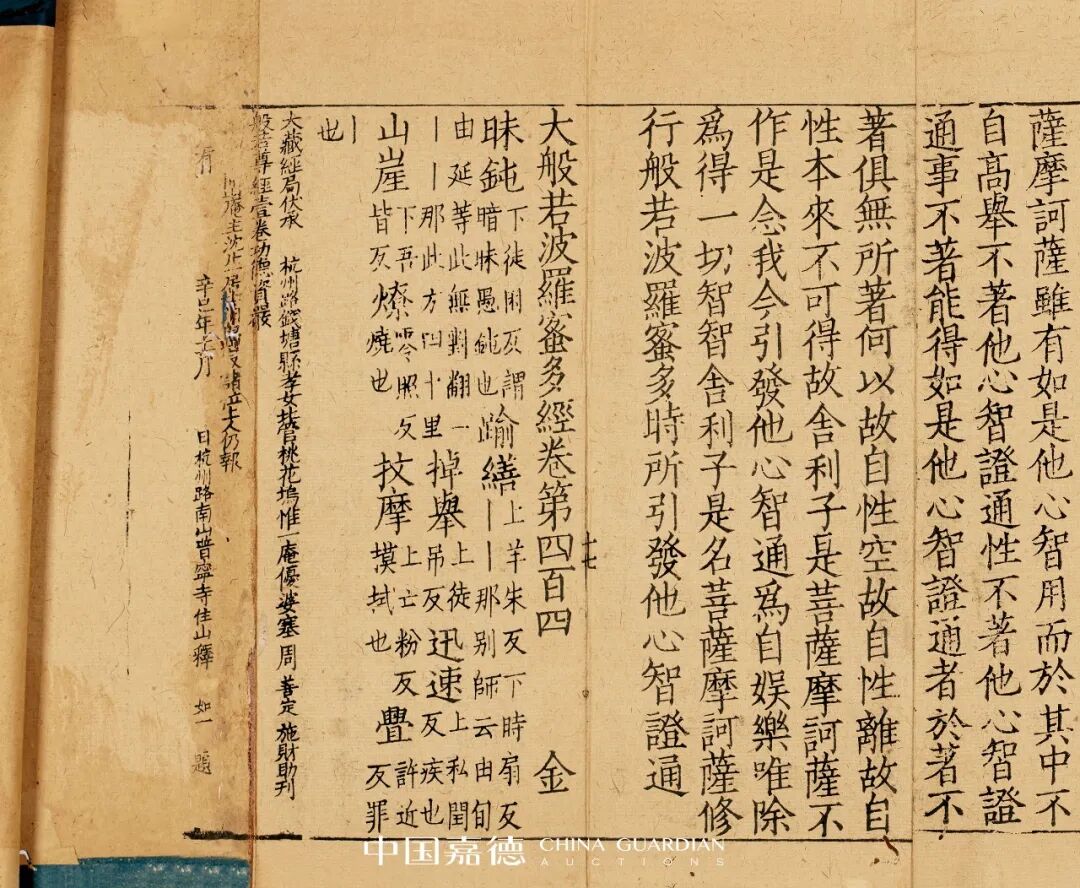 薩摩訶薩雖有如是他心智用而於其中不
自高舉不著他心智證通性不著他心智證
通事不著能得如是他心智證通者於著不
著俱無所著何以故自性空故自性離故自
性本來不可得故舍利子是菩薩摩訶薩不
作是念我今引發他心智通爲自娛樂唯除
爲得一切智智舍利子是名菩薩摩訶薩修
行般若波羅蜜多時所引發他心智證通
十七
大般若波羅蜜多經卷第四百四 金
昧鈍下徒困反謂踰繕上羊朱反下時扇反
暗昧愚鈍也丨丨那别師云由旬
由延等此無對翻一掉舉上徒迅速上私閏
丨丨那此方四十里吊反反疾也
山崖下吾燎零照反抆摩上亡粉反疊許近
皆反燒也摸拭也反罪
丨
也
大藏經局伏承 杭州路錢塘縣孝女營桃花塢惟一庵優婆塞周 善定 施財助刊
般若尊經壹卷功德資嚴
庵主沈 上人仍報
有 辛巳年 月 日杭州路南山普寧寺住山釋 如一 題
中国嘉德 CHINA GUARDIAN
AUCTIONS